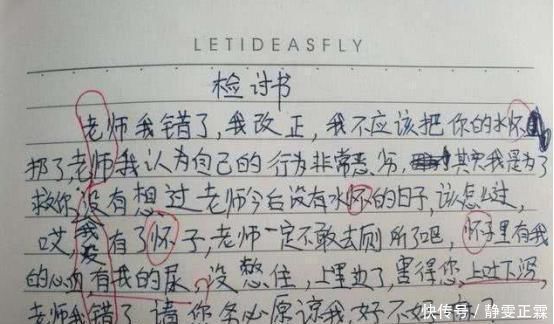 LETIDEASFLY
检讨书
老师我错了,我改正,我不应该把你的水怀
扔了,老师我认为自己的行为非常恶劣,其实我是为了
救你,没有想过老师今后没有水怀的日子,该怎么过,
哎,我发有了怀子,老师一定不敢去厕所了吧,怀子里有我
的心血,有我的尿,没憋住,上里边了,害得您,上吐下泻,
老师我错了,请你务必原谅我,好不好
快传号/静雯正霖